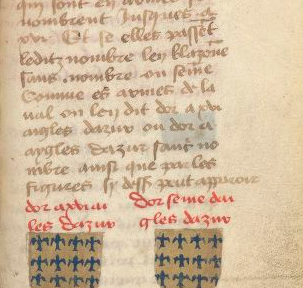 qui sont en armes
nombrent Jusques a
xvi Et se elles passent
ledit nombre len blazonne
sans nombre ou seme
Comme es armes de la
ual on len dit dor a xvi
aigles dazur ou dor a
aygles dazur sans no
mbre ainsi que par les
figures cy dess peut apparoir
dor a xvi ai
gles dazur
dor seme dai
gles dazur